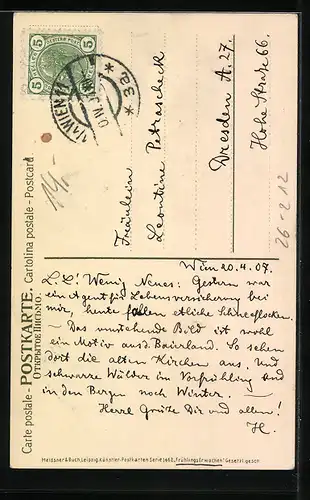 5 5
1/1 WIEN
* 3a *
Carte postale - POSTKARTE. Cartolina postale - Postcard
ОТКРЫТОЕ ПИСЬМО.
14.-
Fräulein
Leontine Petrascheck
Dresden A. 27.
Hohe Straße 66.
26-212
Wien 20.4.07.
L.L! Wenig Neues: Gestern war
ein Agent für Lebensversicherung bei
mir, heute fallen etliche Schneeflocken.
- Das umstehende Bild ist wohl
ein Motiv aus d. Baierland. So sehen
dort die alten Kirchen aus. Und
schwarze Wälder im Vorfrühling und
in den Bergen noch Winter. -
Grüße Dir und allen!
H.
Meissner & Buch, Leipzig. Künstler-Postkarten Serie 1462 „Frühlings Erwachen" Gesetzl. gesch.